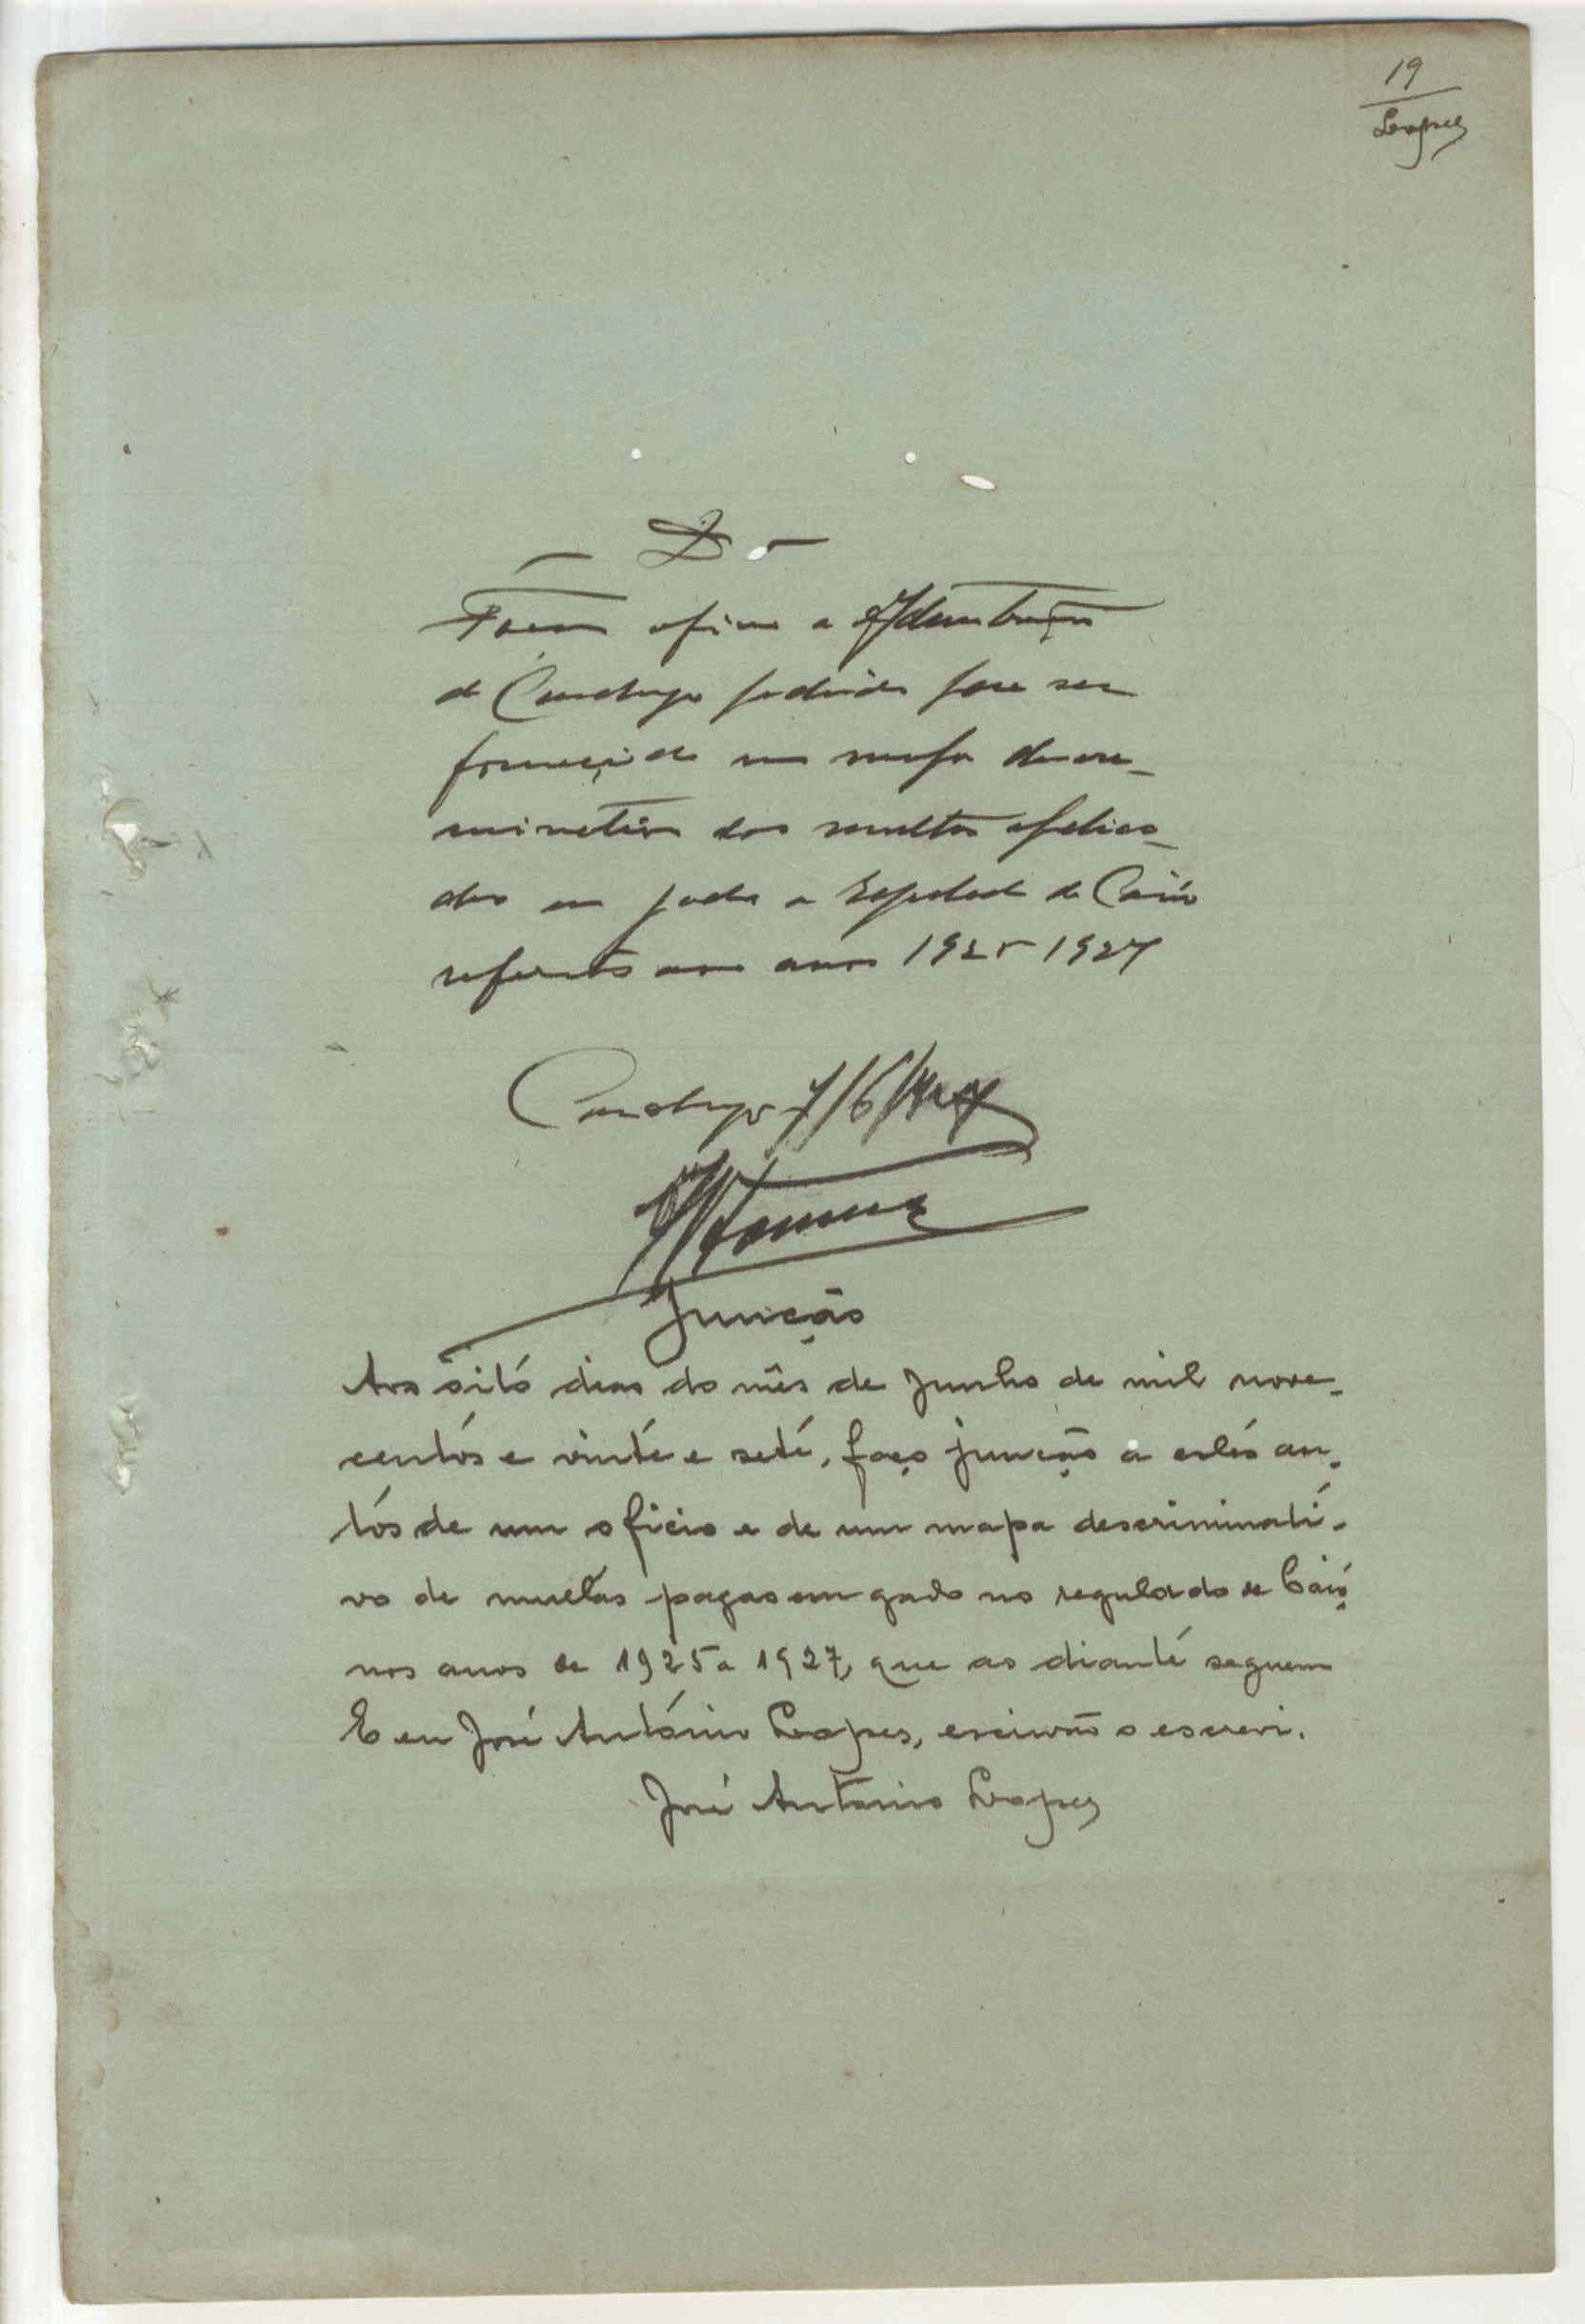 19
Lopes
— D —
ofício a Administração
de Canchungo pedindo para ser
fornecido um mapa descre-
minativo das multas aplica-
das em gado a regulado de Caió
referentes aos anos 1925 1927
Canchungo 7/6/927
Junção
Aos oito dias do mês de Junho de mil nove-
centos e vinte e sete, faço junção a estes au-
tos de um oficio e de um mapa descriminati-
vo de multas pagas em gado no regulado de Caió
nos anos de 1925 a 1927, que ao diante seguem
E eu José António Lopes, escrivão o escrevi.
José António Lopes